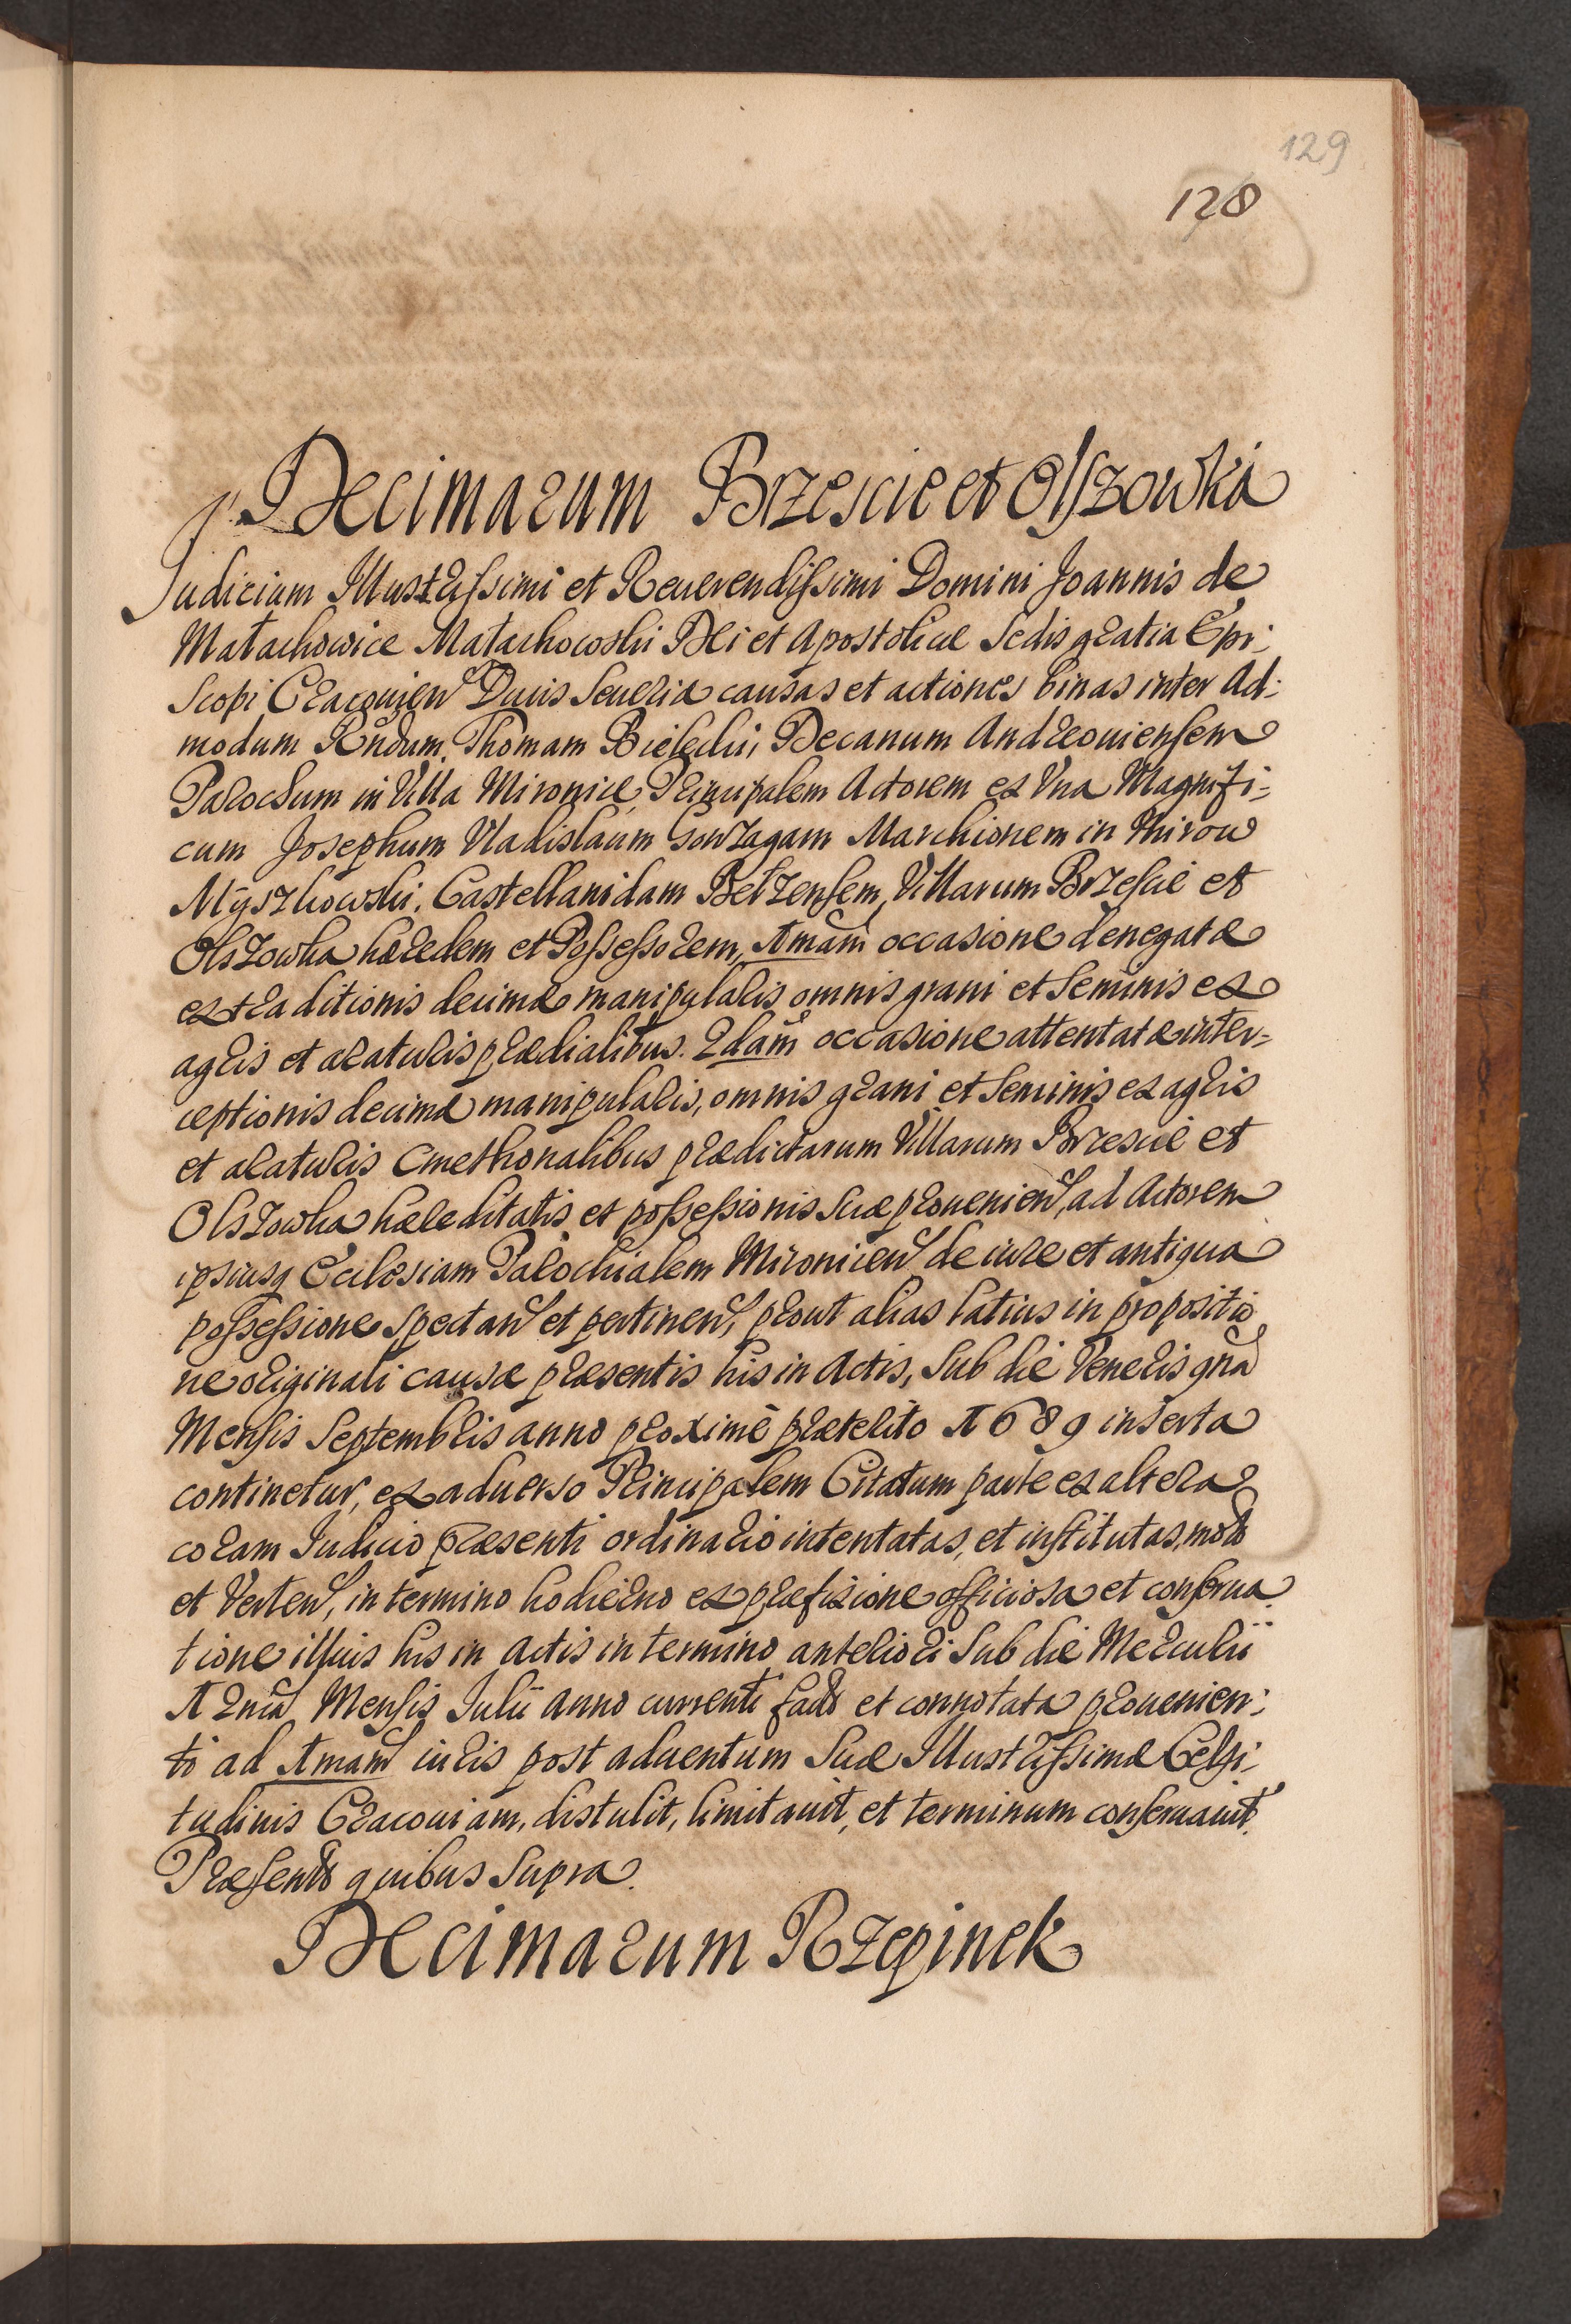 129
128
Decimarum Brzescie et Olszowka
Judicium Illustrissimi et Reuerendissimi Domini Joannis de
Małachowice Małachowski Dei et Apostolicæ Sedis gratia Epi-
scopi Cracouien Ducis Seueriæ causas et actiones binas inter Ad-
modum Rndum. Thomam Bielecki, Decanum Andreouiensem
Parochum in Villa Mironice, Principalem Actorem ex Vna Magnifi-
cum Josephum Vladislaum Gonzagam Marchionem in Mirow
Myszkowski, Castellanidam Bełzensem, Villarum Brzescie et
Olszowka hæredem et Possessorem, 1mam occasione denegatæ
extraditionis decimæ manipularis omnis grani et Seminis ex
agris et araturis prædialibus. 2dam occasione attentatæ inter-
ceptionis decimæ manipularis, omnis grani et Seminis ex agris
et araturis Cmethonalibus prædictarum Villarum Brzescie et
Olszowka hæreditatis et possessionis Suæ prouenien, ad Actorem
ipsiusq Ecclesiam Parochialem Mironicen de iure et antiqua
possessione Spectan et pertinen, prout alias latius in propositio
ne originali causæ præsentis his in Actis, Sub die Veneris 9na
Mensis Septembris anno proximè præterito 1689 inserta
continetur, ex aduerso Principalem Citatum parte ex altera
coram Iudicio præsenti ordinario intentatas, et institutas, motas
et Verten, in termino hodierno ex præfixione officiosa et conserua
tione illius his in Actis in termino anteriori Sub die Mercurii
12ma Mensis Iulii anno currenti facta et connotata prouenien-
ti ad 1mam iuris post aduentum Suæ Illustrissimæ Celsi-
tudinis Cracouiam, distulit, limitauit, et terminum conseruauit.
Præsentibus quibus Supra.
Decimarum Rzepinek